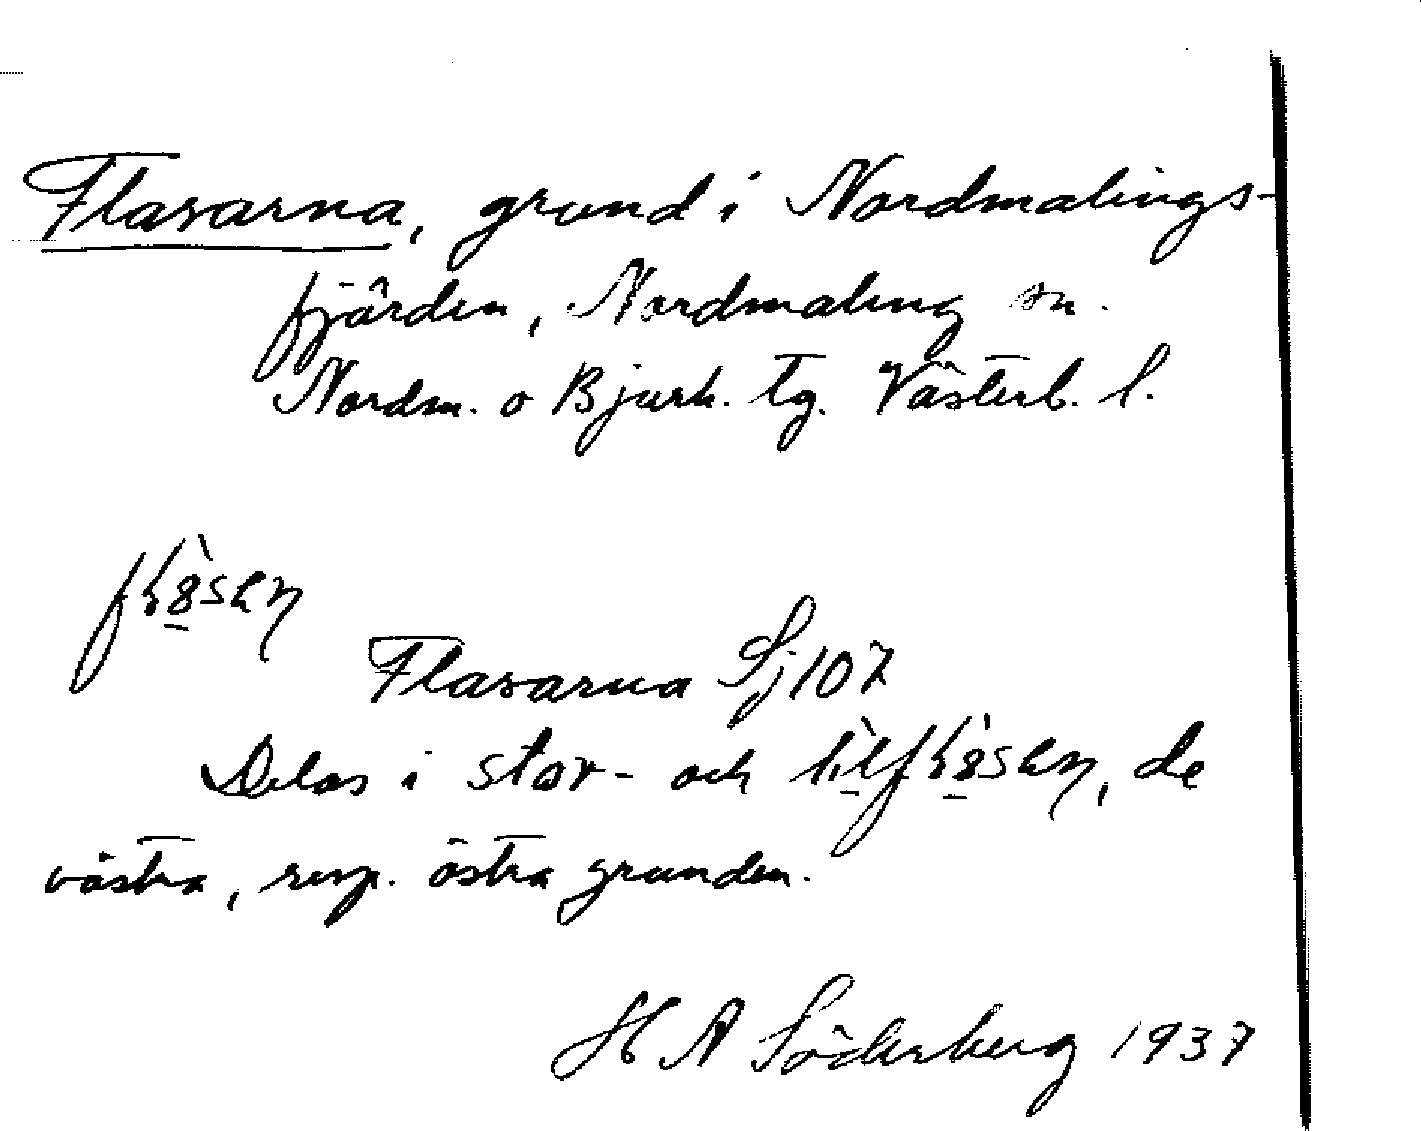 Flasarna, grund i Nordmalings-
fjärden, Nordmaling sn.
Nordm. o Bjurh. tg. Västerb. l.
Flasarna Sj 107
Delas i stor- och de
västra, resp. östra grunden.
H A Söderberg 1937